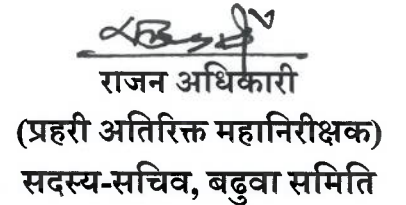 राजन अधिकारी
(प्रहरी अतिरिक्त महानिरीक्षक)
सदस्य-सचिव, बढुवा समिति